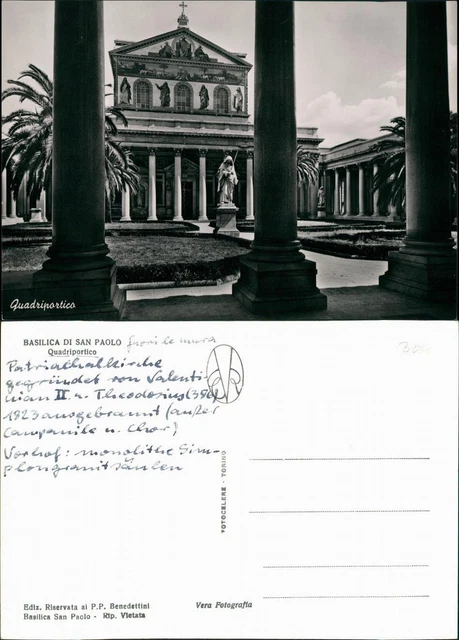 Quadriportico
BASILICA DI SAN PAOLO fuori le mura
Quadriportico
Patriarchalkirche
gegründet von Valenti-
nian II u. Theodosius (386)
1823 ausgebrannt (außer
Campanile u. Chor)
Vorhof: monolithe Sim-
plongranitsäulen
FOTOCELERE - TORINO
Ediz. Riservata ai P.P. Benedettini
Basilica San Paolo - Rip. Vietata
Vera Fotografia